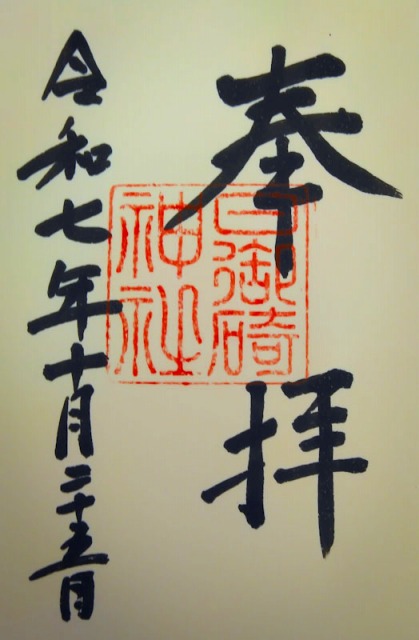 奉拝
日御碕
神社
令和七年十月二十五日